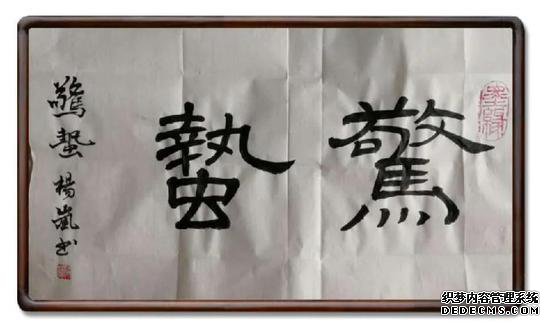 驚蟄
驚蟄 楊嵐书
织梦内容管理系统
DEDECMS.COM